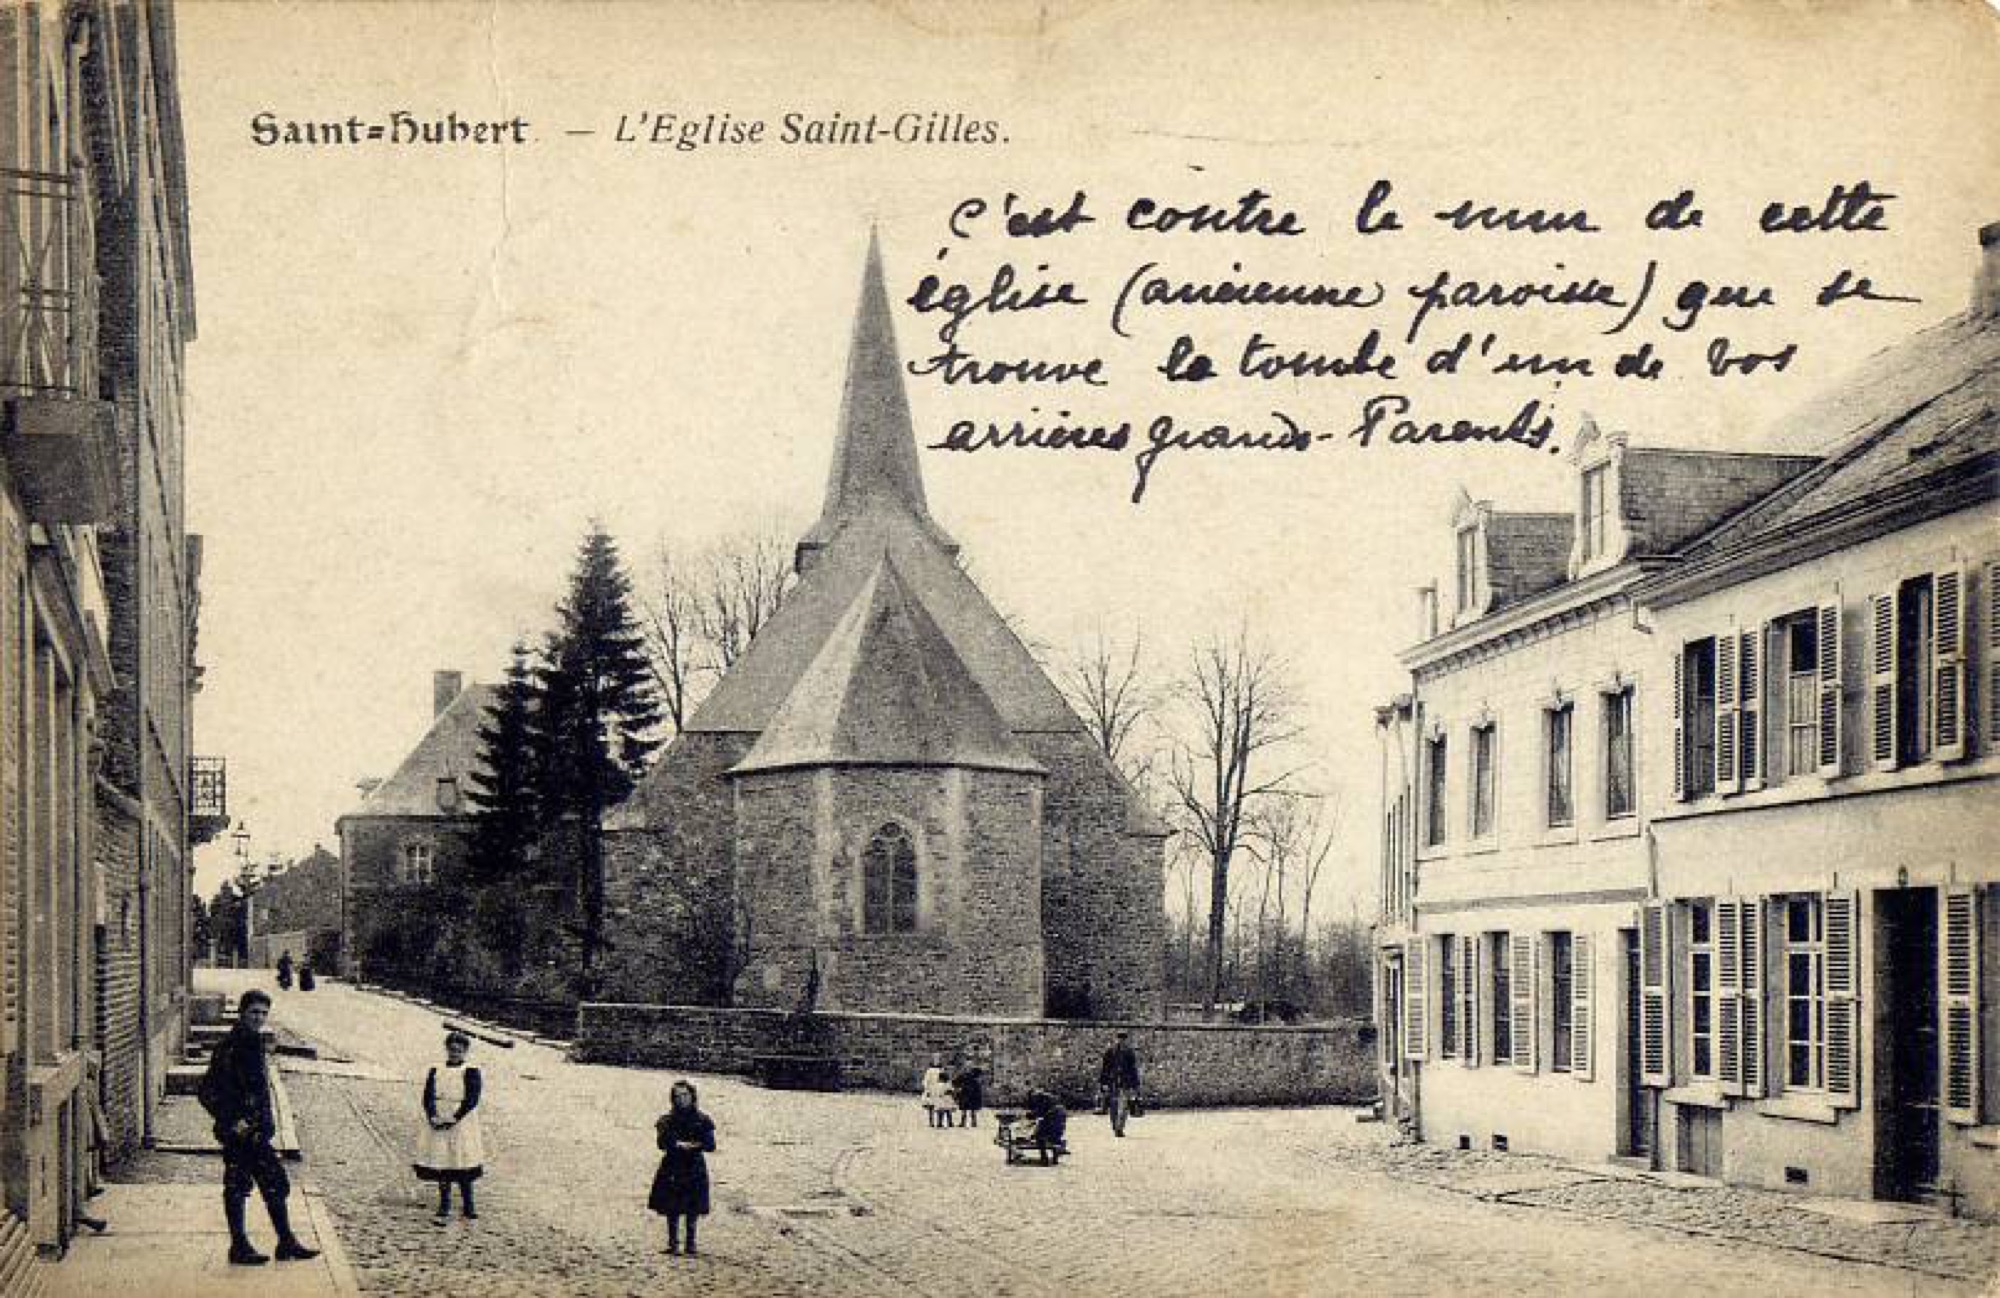 Saint-Hubert. — L'Eglise Saint-Gilles.
C'est contre le mur de cette
église (ancienne paroisse) que se
trouve la tombe d'un de vos
arrières grands-Parents.